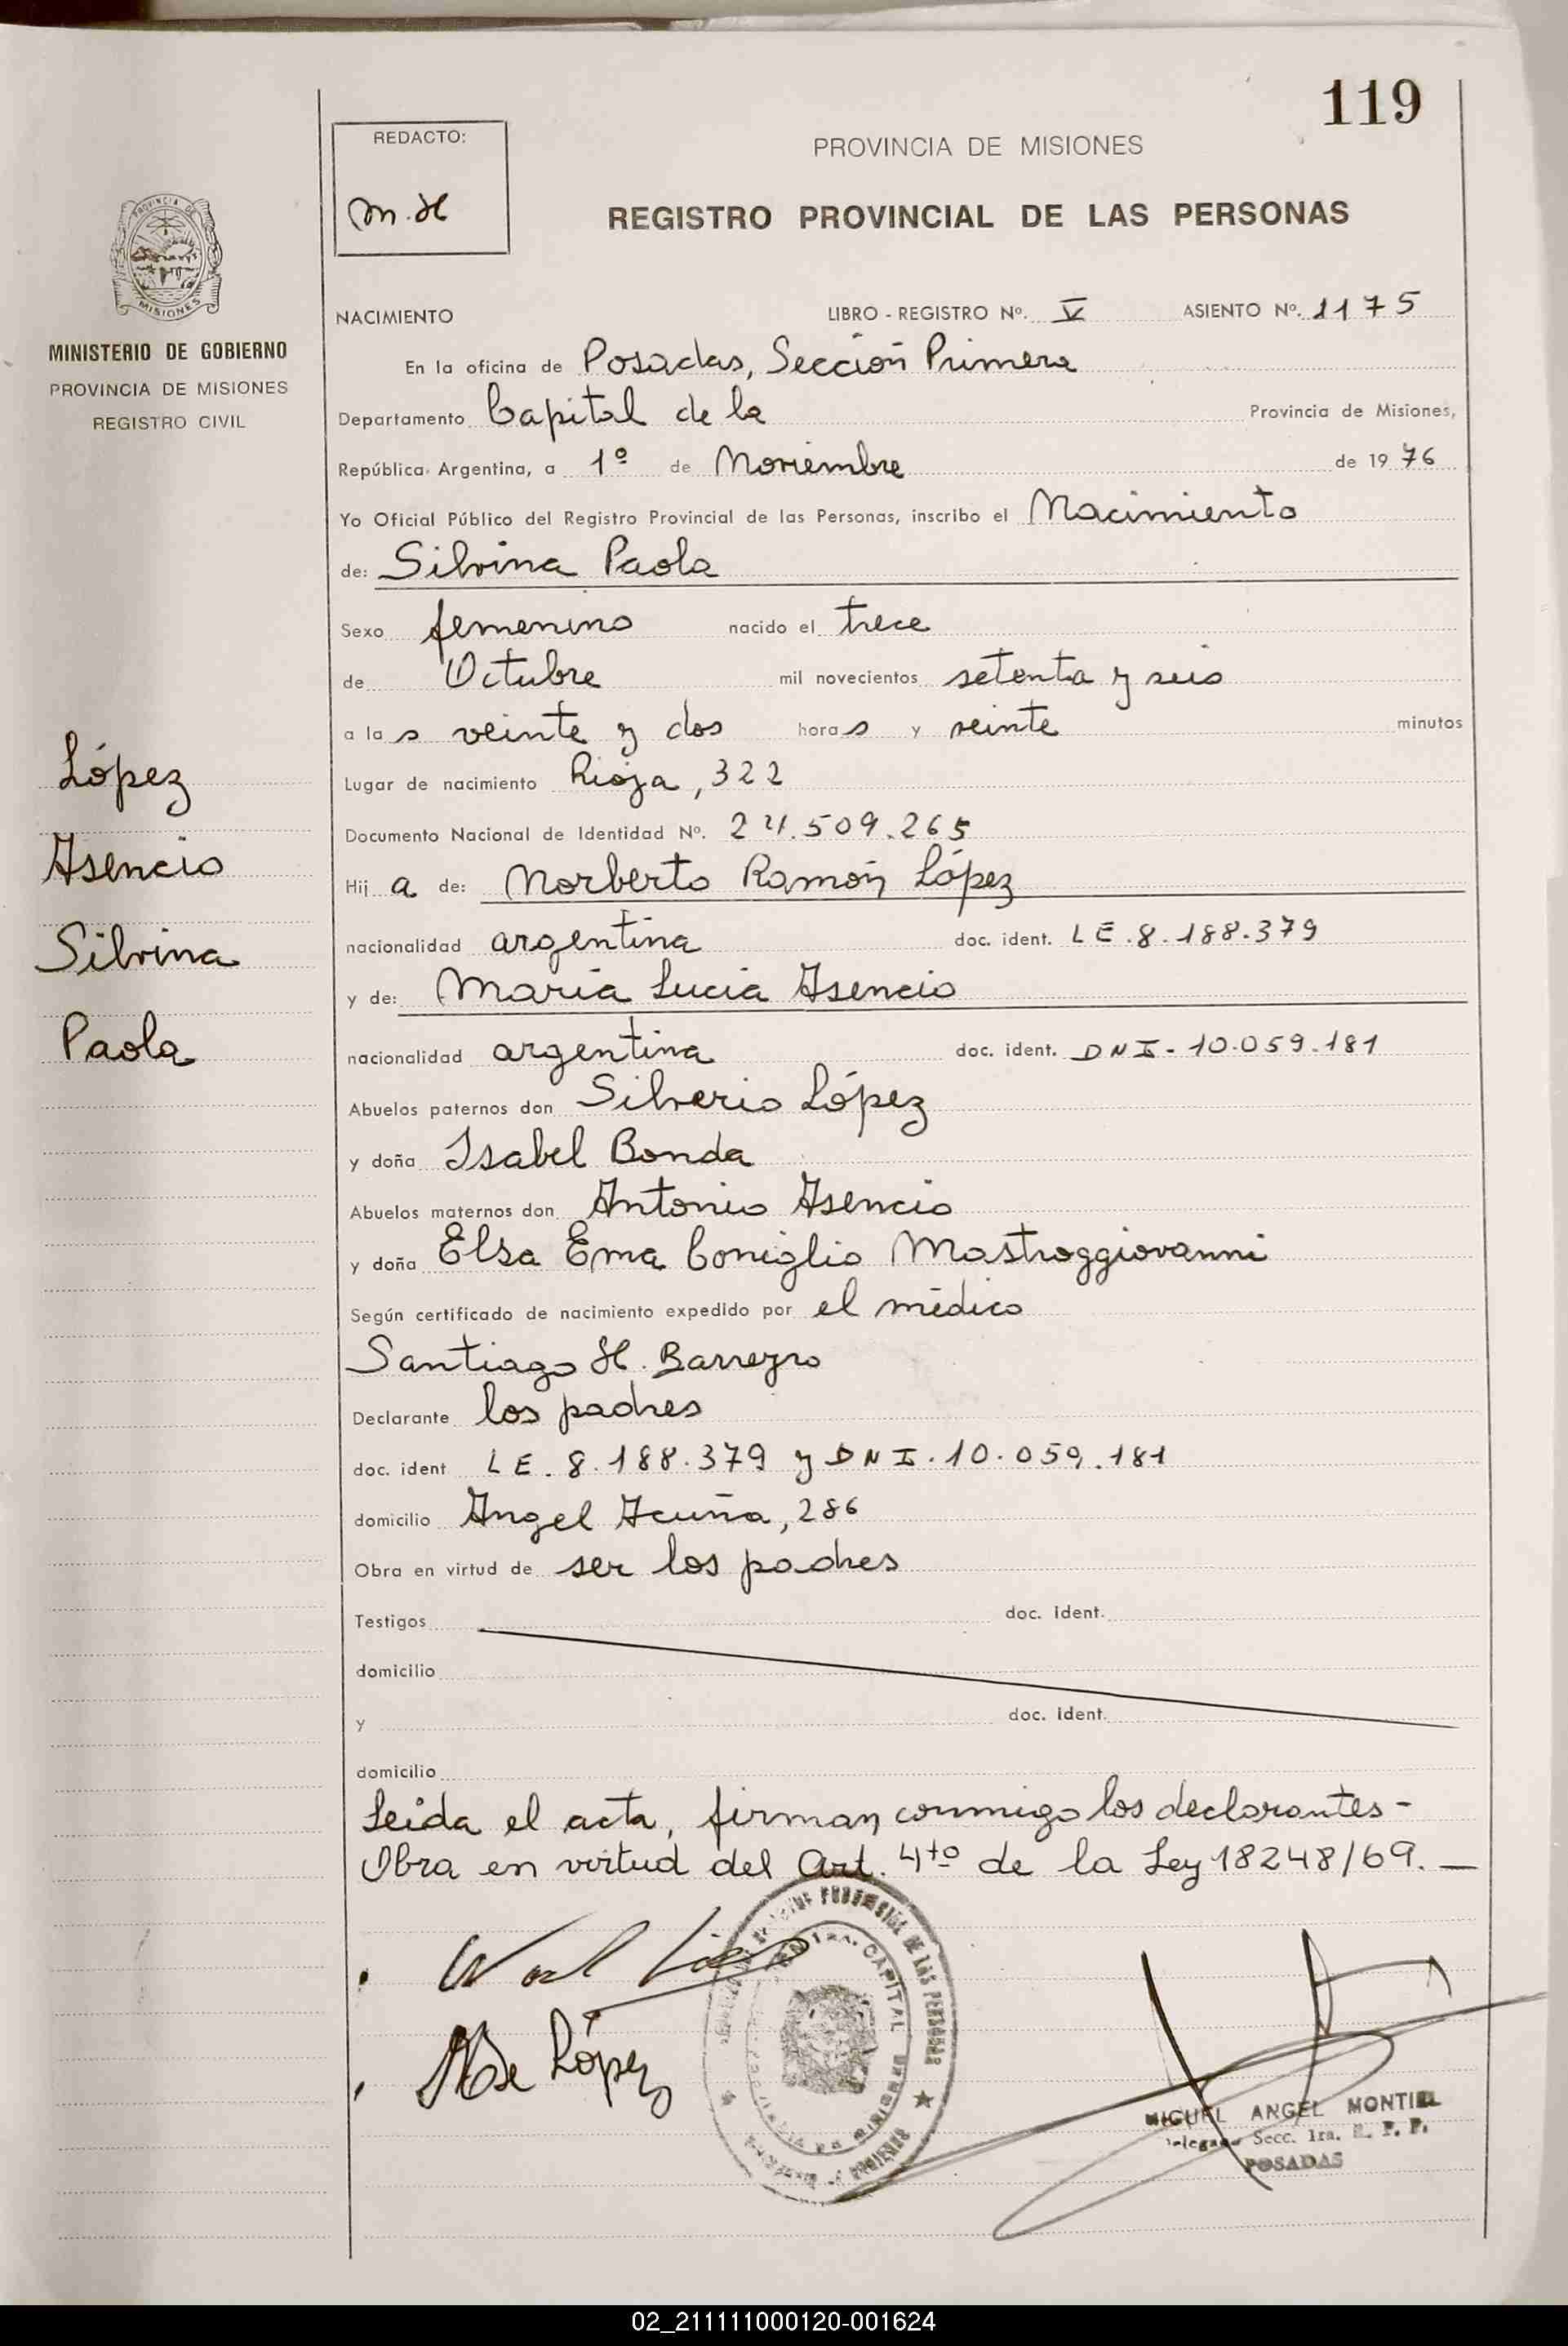 119
REDACTO:
M.H
PROVINCIA DE MISIONES
REGISTRO PROVINCIAL DE LAS PERSONAS
PROVINCIA DE
MISIONES
MINISTERIO DE GOBIERNO
PROVINCIA DE MISIONES
REGISTRO CIVIL
López
Asencio
Silvina
Paola
NACIMIENTO LIBRO - REGISTRO Nº. V ASIENTO Nº. 1175
En la oficina de Posadas, Sección Primera
Departamento Capital de la Provincia de Misiones,
República Argentina, a 1º de Noviembre de 1976
Yo Oficial Público del Registro Provincial de las Personas, inscribo el Nacimiento
de: Silvina Paola
Sexo femenino nacido el trece
de Octubre mil novecientos setenta y seis
a las veinte y dos horas y veinte minutos
Lugar de nacimiento Rioja, 322
Documento Nacional de Identidad Nº. 24.509.265
Hija de: Norberto Ramón López
nacionalidad argentina doc. ident. LE.8.188.379
y de: María Lucia Asencio
nacionalidad argentina doc. ident. DNI-10.059.181
Abuelos paternos don Silverio López
y doña Isabel Bonda
Abuelos maternos don Antonio Asencio
y doña Elsa Ema Coniglio Mastroggiovanni
Según certificado de nacimiento expedido por el médico
Santiago H. Barreyro
Declarante los padres
doc. ident LE.8.188.379 y DNI.10.059.181
domicilio Angel Acuña, 286
Obra en virtud de ser los padres
Testigos doc. ident.
domicilio
y doc. ident.
domicilio
Leida el acta, firman conmigo los declarantes-
Obra en virtud del Art. 4to de la Ley 18248/69.—
López
DE LAS PERSONAS
CAPITAL
MISIONES
MIGUEL ANGEL MONTIEL
Delegado Secc. 1ra. R. P. P.
POSADAS
02_211111000120-001624